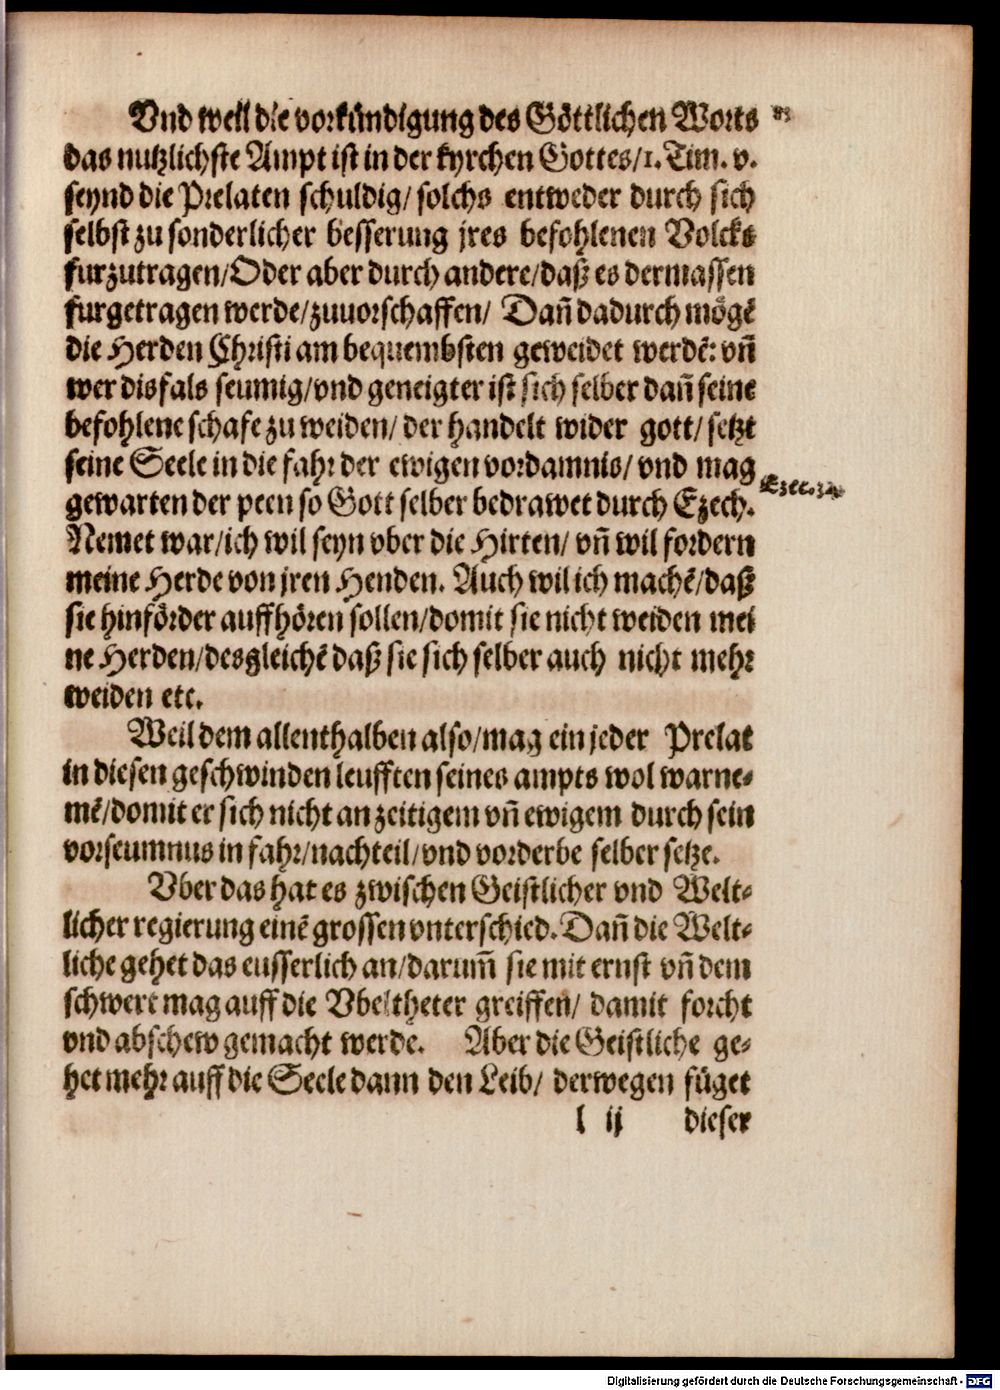 Vnd weil die vorkündigung des Göttlichen Worts
das nutzlichste Ampt ist in der kyrchen Gottes/1. Tim. v.
seynd die Prelaten schuldig/ solchs entweder durch sich
selbst zu sonderlicher besserung jres befohlenen Volcks
furzutragen/Oder aber durch andere/daß es dermassen
furgetragen werde/zuuorschaffen/ Dañ dadurch mögẽ
die Herden Christi am bequembsten geweidet werdẽ: vñ
wer disfals seumig/vnd geneigter ist sich selber dañ seine
befohlene schafe zu weiden/ der handelt wider gott/ setzt
seine Seele in die fahr der ewigen vordamnis/ vnd mag
Ezec. 34
gewarten der peen so Gott selber bedrawet durch Ezech.
Nemet war/ich wil seyn vber die Hirten/ vñ wil fordern
meine Herde von jren Henden. Auch wil ich machẽ/daß
sie hinförder auffhören sollen/domit sie nicht weiden mei
ne Herden/desgleichẽ daß sie sich selber auch nicht mehr
weiden etc.
Weil dem allenthalben also/mag ein jeder Prelat
in diesen geschwinden leufften seines ampts wol warne⸗
mẽ/domit er sich nicht an zeitigem vñ ewigem durch sein
vorseumnus in fahr/nachteil/vnd vorderbe selber setze.
Vber das hat es zwischen Geistlicher vnd Welt⸗
licher regierung einẽ grossen vnterschied. Dañ die Welt⸗
liche gehet das eusserlich an/darum̃ sie mit ernst vñ dem
schwert mag auff die Vbeltheter greiffen/ damit forcht
vnd abschew gemacht werde. Aber die Geistliche ge⸗
het mehr auff die Seele dann den Leib/ derwegen füget
l ij dieser
Digitalisierung gefördert durch die Deutsche Forschungsgemeinschaft - DFG